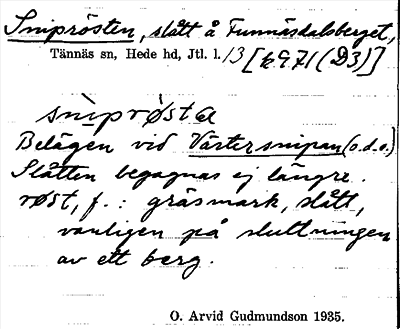 Sniprösten, slått å Funnäsdalsberget,
Tännäs sn, Hede hd, Jtl. l. 13 [k 971 (D3)]
snìprǿsta
Belägen vid Västersnipan (o.d.o.)
Slåtten begagnas ej längre.
røst, f. : gräsmark, slått,
vanligen på sluttningen
av ett berg.
O. Arvid Gudmundson 1935.